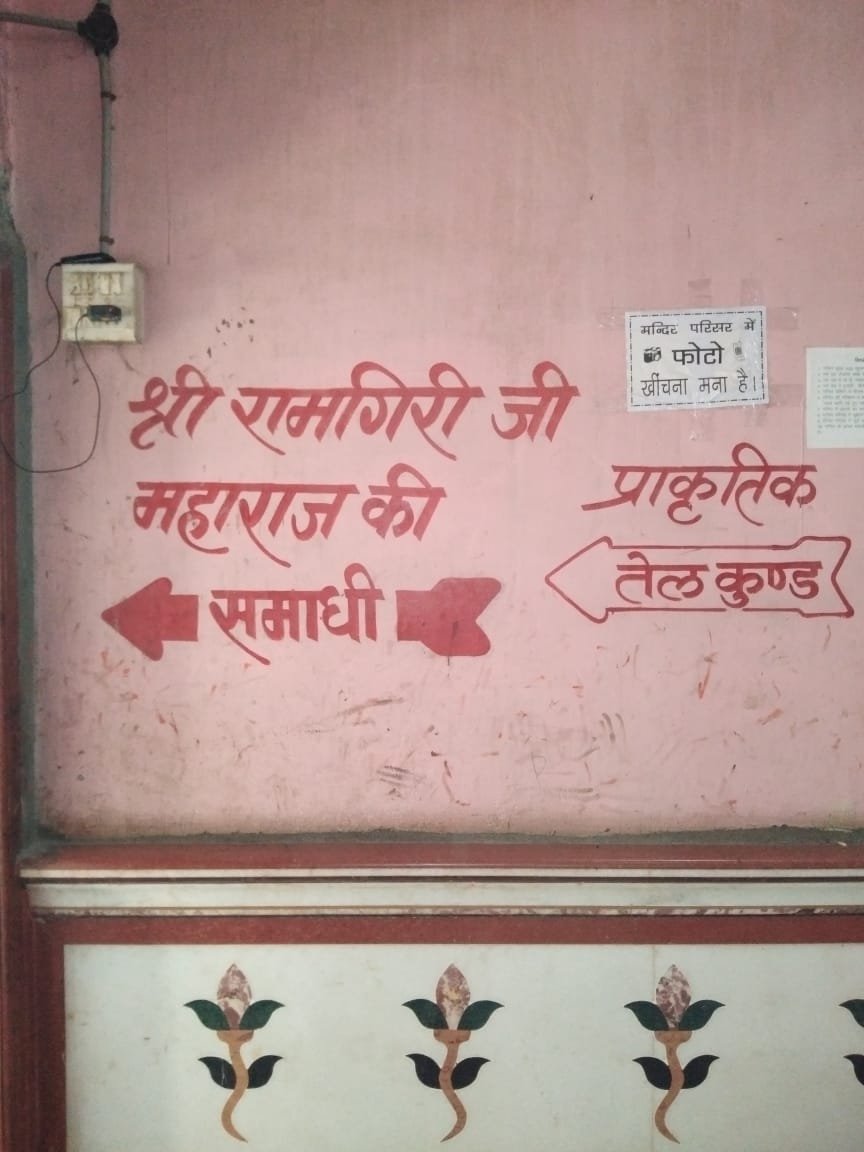 श्री रामागिरी जी
महाराज की
समाधी
मन्दिर परिसर में
फोटो
खींचना मना है।
प्राकृतिक
तेल कुण्ड